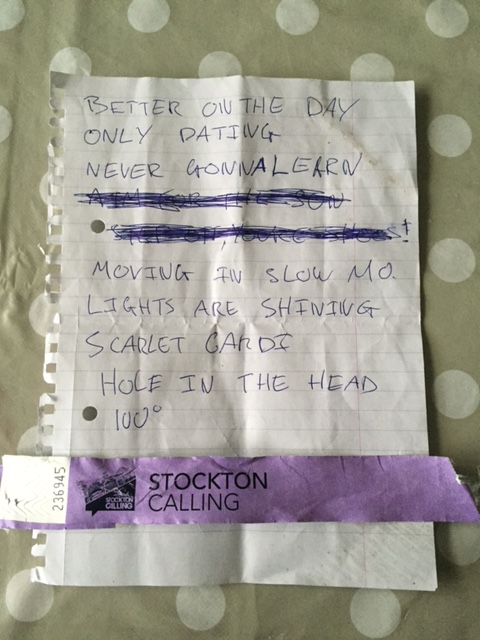 BETTER ON THE DAY
ONLY DATING
NEVER GONNA LEARN
AIM FOR THE SUN
MOVING IN SLOW MO.
LIGHTS ARE SHINING
SCARLET CARDI
HOLE IN THE HEAD
100°
236945
STOCKTON CALLING
STOCKTON
CALLING